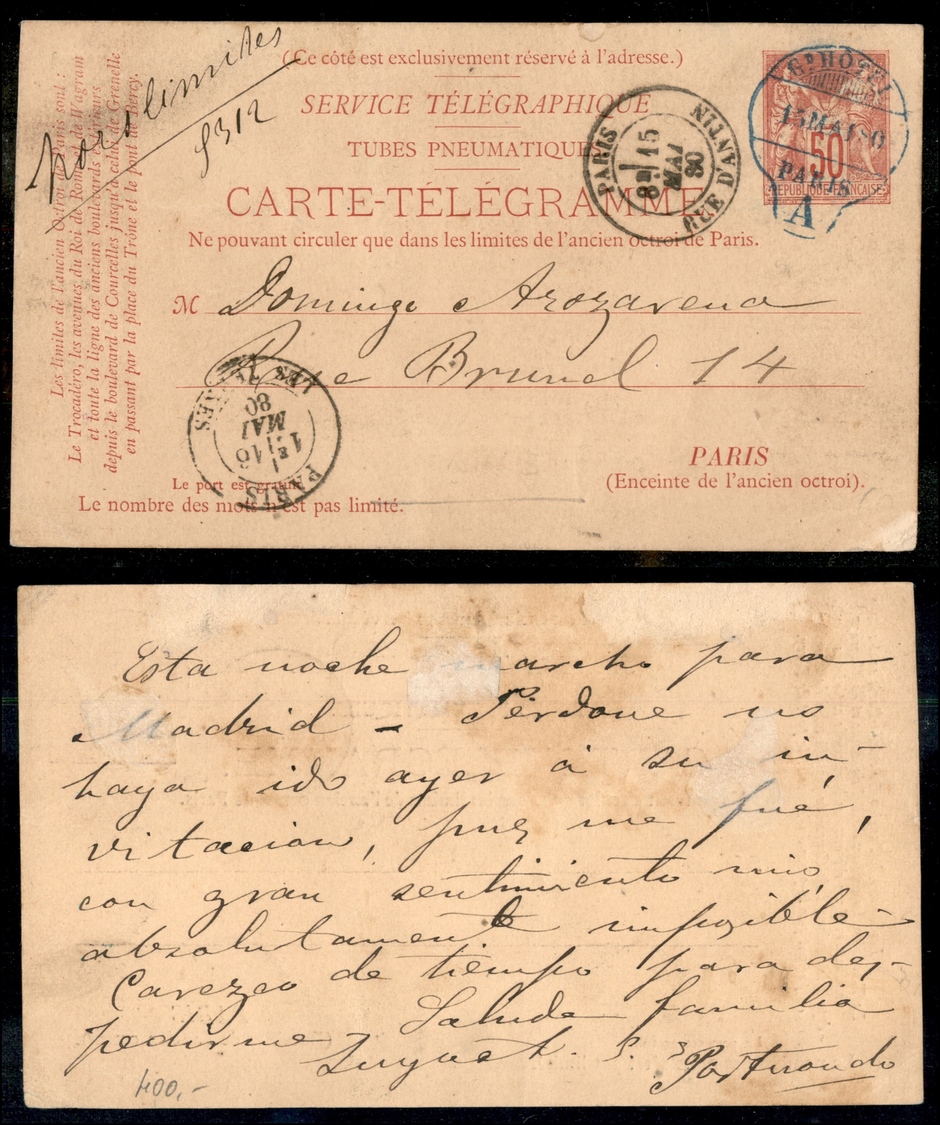 (Ce côté est exclusivement réservé à l'adresse.)
SERVICE TÉLÉGRAPHIQUE
TUBES PNEUMATIQUES
CARTE-TÉLÉGRAMME
Ne pouvant circuler que dans les limites de l'ancien octroi de Paris.
hors limites
8312
Les limites de l'ancien Octroi de Paris sont :
Le Trocadéro, les avenues du Roi de Rome, de Wagram
et toute la ligne des anciens boulevards extérieurs
depuis le boulevard de Courcelles jusqu'à celui de Grenelle
en passant par la place du Trône et le pont de Bercy.
PARIS
15
MAI
80
RUE D'ANTIN
Gd HOTEL
15 MAI 80
PARIS
A
50
REPUBLIQUE FRANÇAISE
M Domingo Arozarena
Rue Brunel 14
PARIS
16
MAI
80
LES TERNES
PARIS
(Enceinte de l'ancien octroi).
Le port est gratuit
Le nombre des mots n'est pas limité.
Esta noche marcho para
Madrid - Perdone no
haya ido ayer á su in-
vitacion, pues me fué,
con gran sentimiento mio
absolutamente imposible-
Carezco de tiempo para des-
pedirme. Saluda familia
S. S. Portuondo
400,-